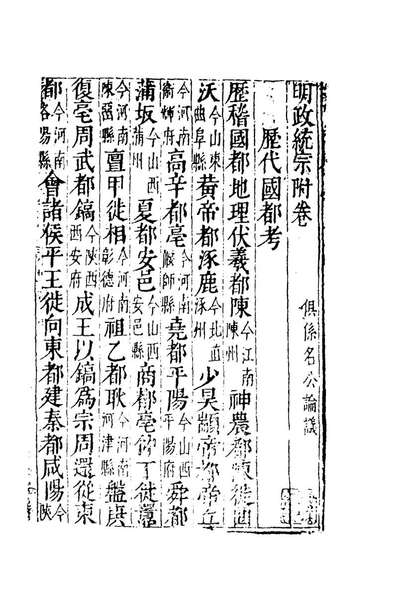 明政統宗附卷
俱係名公論議
歷代國都考
歷稽國都地理伏羲都陳今江南陳州神農都陳徙曲
沃今山東曲阜縣黃帝都涿鹿今北直涿州少昊顓帝都帝丘
今河南衛輝府高辛都亳今河南偃師縣堯都平陽今山西平陽府舜都
蒲坂今山西蒲州夏都安邑今山西安邑縣商都亳仲丁徙囂
今河南陳留縣亶甲徙相今河南彰德府祖乙都耿今河南河津縣盤庚
復亳周武都鎬今陝西西安府成王以鎬為宗周還從東
都今河南洛陽縣會諸侯平王徙向東都建秦都咸陽今陝